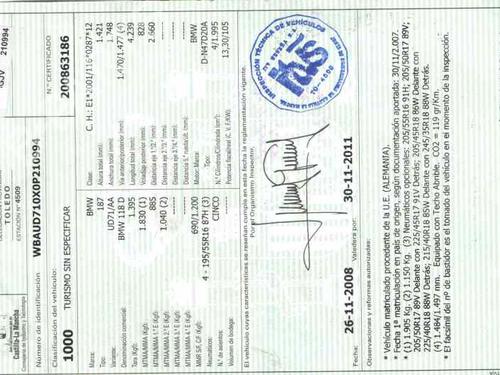 TOLEDO
ESTACIÓN nº 4509
Castilla-La Mancha
Número de identificación
WBAUD710X0P210994
N.º CERTIFICADO
200863186
210994
Clasificación del vehículo:
1000 TURISMO SIN ESPECIFICAR
Marca: BMW
Tipo: 187
Variante: UD71/AA
Denominación comercial: BMW 118 D
Tara (Kgf): 1.395
MTMA/MMA (Kgf): 1.830 (1)
MTMA/MMA 1.º E (Kgf): 885
MTMA/MMA 2.º E (Kgf): 1.040 (2)
MTMA/MMA 3.º E (Kgf): ------
MTMA/MMA 4.º E (Kgf): ------
MMR S/F, C/F (Kgf): 690/1.200
Neumáticos: 4 - 195/55R16 87H (3)
N.º de asientos: CINCO
Volumen de bodegas: ------
C. H.: E1*2001/116*0287*12
Clase:
Altura total (mm): 1.421
Anchura total (mm): 1.748
Vía anterior/posterior (mm): 1.470/1.477 (4)
Longitud total (mm): 4.239
Voladizo posterior (mm): 828
Distancia eje 1.º-2.º (mm): 2.660
Marca motor: BMW
D-N47D20A
N.º Cilindros/Cilindrada (cm³): 4/1.995
Potencia fiscal/real (C. V. F/KW): 13,30/105
El vehículo cuyas características se reseñan cumple en esta fecha la reglamentación vigente.
Por el Organismo Inspector,
INSPECCIÓN TÉCNICA DE VEHÍCULOS
Fecha: 26-11-2008 Valedera por: 30-11-2011
Observaciones y reformas autorizadas:
* Vehículo matriculado procedente de la U.E. (ALEMANIA).
* Fecha 1ª matriculación en país de origen, según documentación aportada: 30/11/2007.
* (1) 1.905 Kg. (2) 1.150 Kg. (3) Neumáticos opcionales: 205/55R16 91H; 205/50R17 89V;
205/50R17 89V Delante con 225/45R17 91V Detrás; 205/45R17 86W Delante con
225/40R18 88W Detrás; 215/40R18 85W Delante con 245/35R18 88W Detrás.
(4) 1.484/1.497 mm. Equipado con Techo Abrible. CO2 = 119 gr/Km.
* El facsímil del nº de bastidor es el tomado del vehículo en el momento de la inspección.